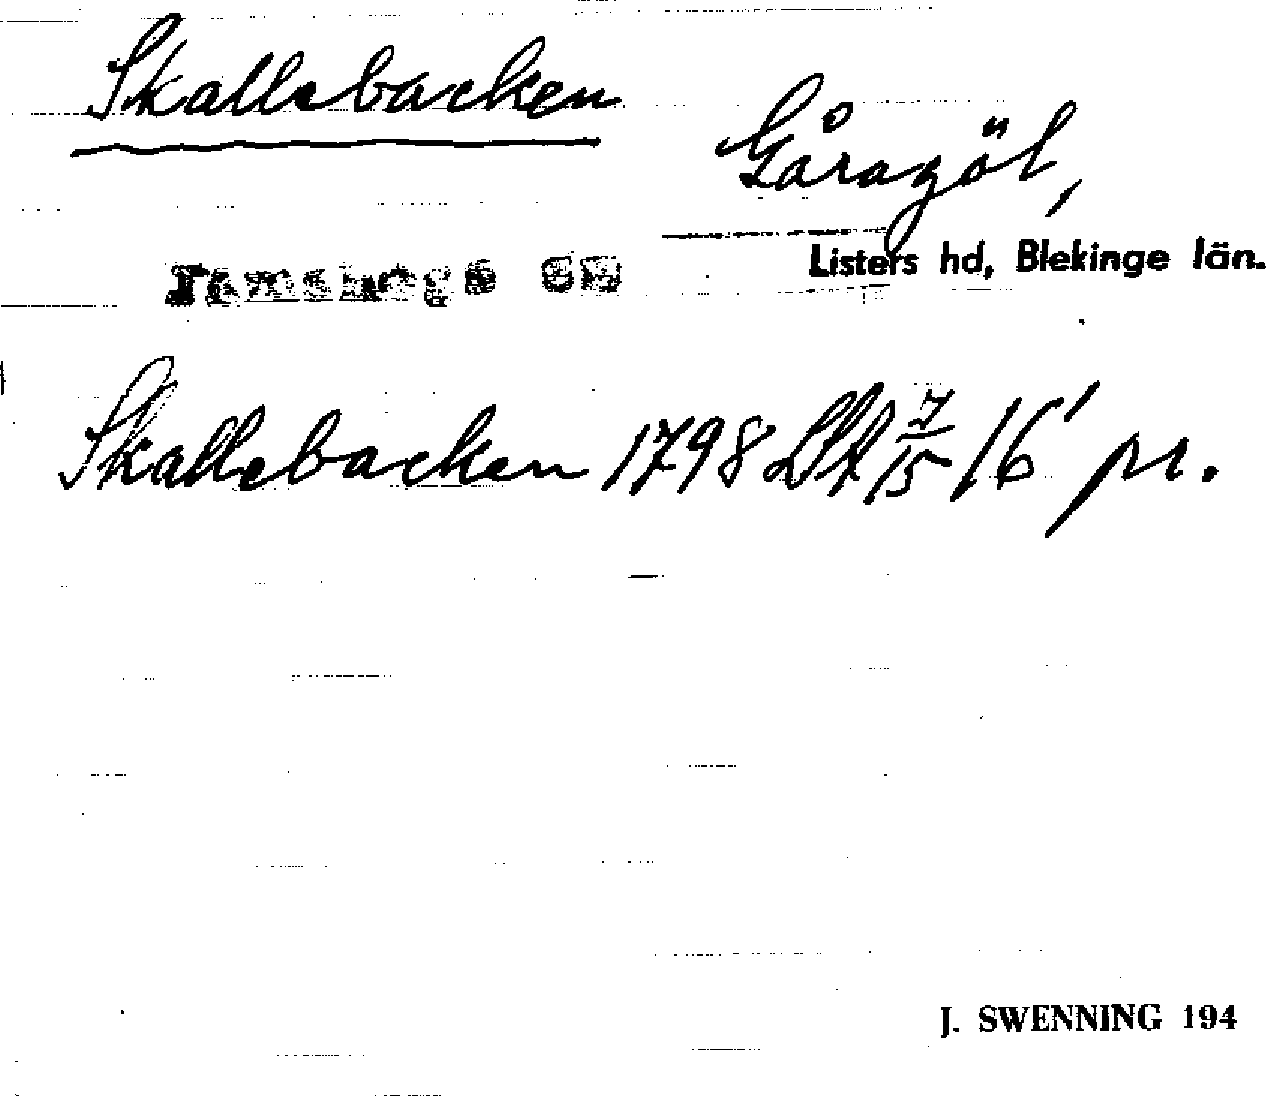 Skallebacken
Gåragöl,
Jämshögs sn
Listers hd, Blekinge län.
Skallebacken 1798 Lſk 7/15 16' pr.
J. SWENNING 194